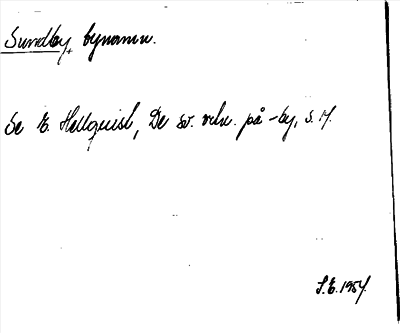 Sundby, bynamn.
Se E. Hellquist, De sv. ortn. på -by, s. 17.
S.E. 1954.